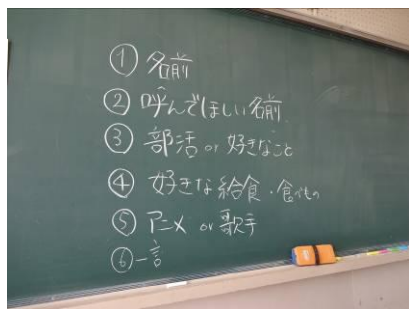 ① 名前
② 呼んでほしい名前
③ 部活 or 好きなこと
④ 好きな給食・食べもの
⑤ アニメ or 歌手
⑥ 一言